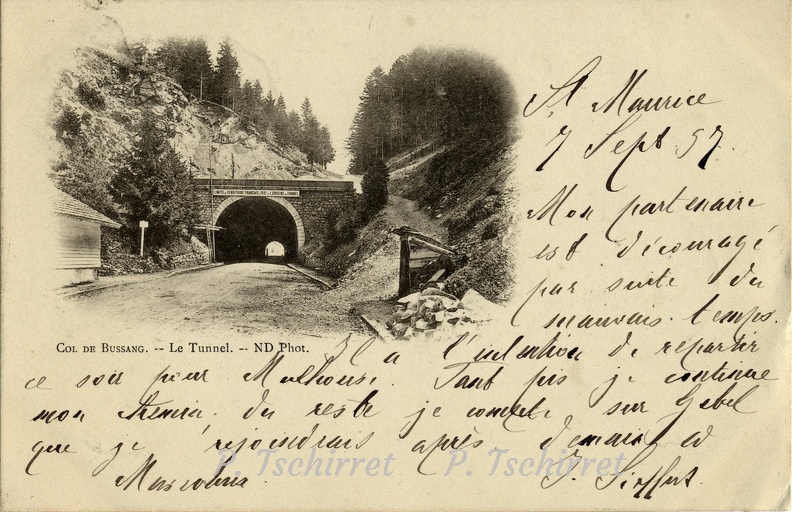 St Maurice
7 Sept 97.
Mon partenaire
est découragé
par suite du
mauvais temps.
LIMITE du TERRITOIRE FRANÇAIS
COL DE BUSSANG. -- Le Tunnel. -- ND Phot.
Il a l'intention de repartir
ce soir pour Mulhouse. Tant pis je continue
mon chemin. Du reste je compte sur Gebel
que je rejoindrais après demain
P. Tschirret P. Tschirret
J. Sieffert.